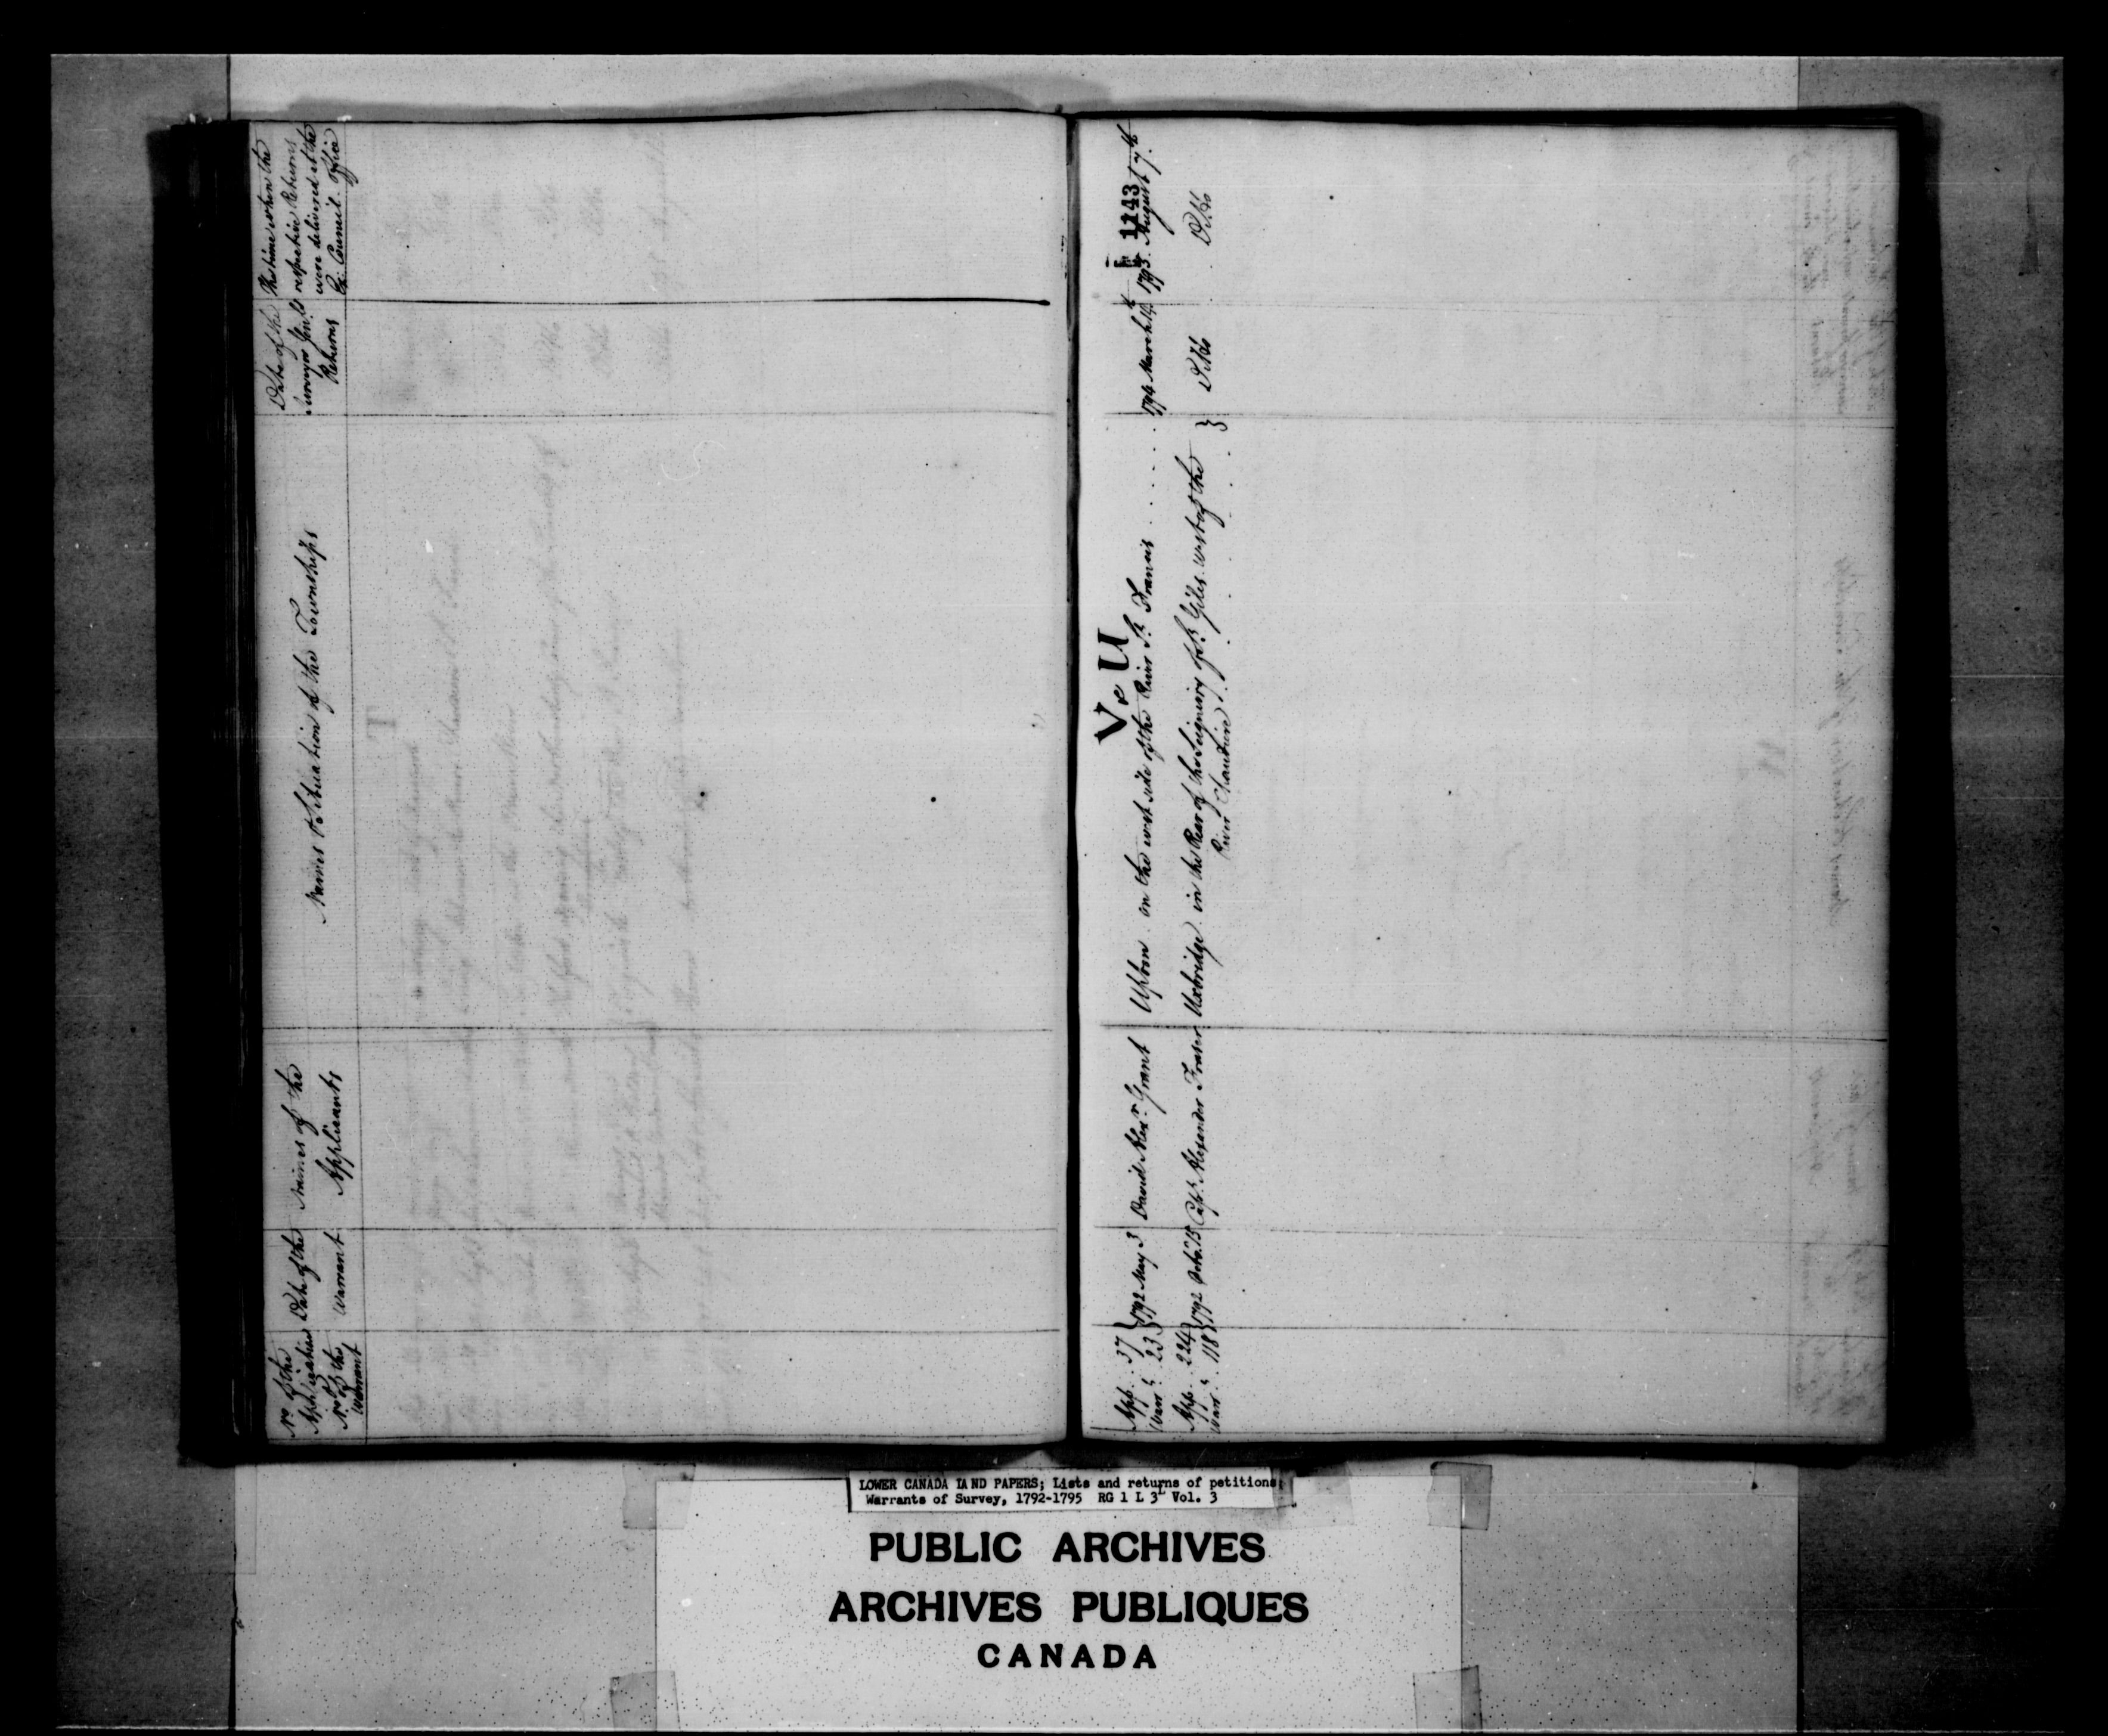 No of the
Application
&
No of the
Warrant
Date of the
Warrant
Names of the
Applicants
Names & Situation of the Townships
Date of the
Surveyor Genls
Returns
The time when the
respective Returns
were delivered at the
Ex: Council Office
1143
V & U
App. 37
Warrt 23
1792 May 3
David Alexr Grant
Upton on the west side of the River St Francis
1794 March 14th
1793 August 7th
App. 224
Warrt 118
1792 Octr 13
Capt. Alexander Fraser
Uxbridge in the Rear of the Seigniory of St Giles west of the
River Chaudiere
Ditto
Ditto
LOWER CANADA LAND PAPERS; Lists and returns of petitions;
Warrants of Survey, 1792-1795 RG 1 L 3L Vol. 3
PUBLIC ARCHIVES
ARCHIVES PUBLIQUES
CANADA